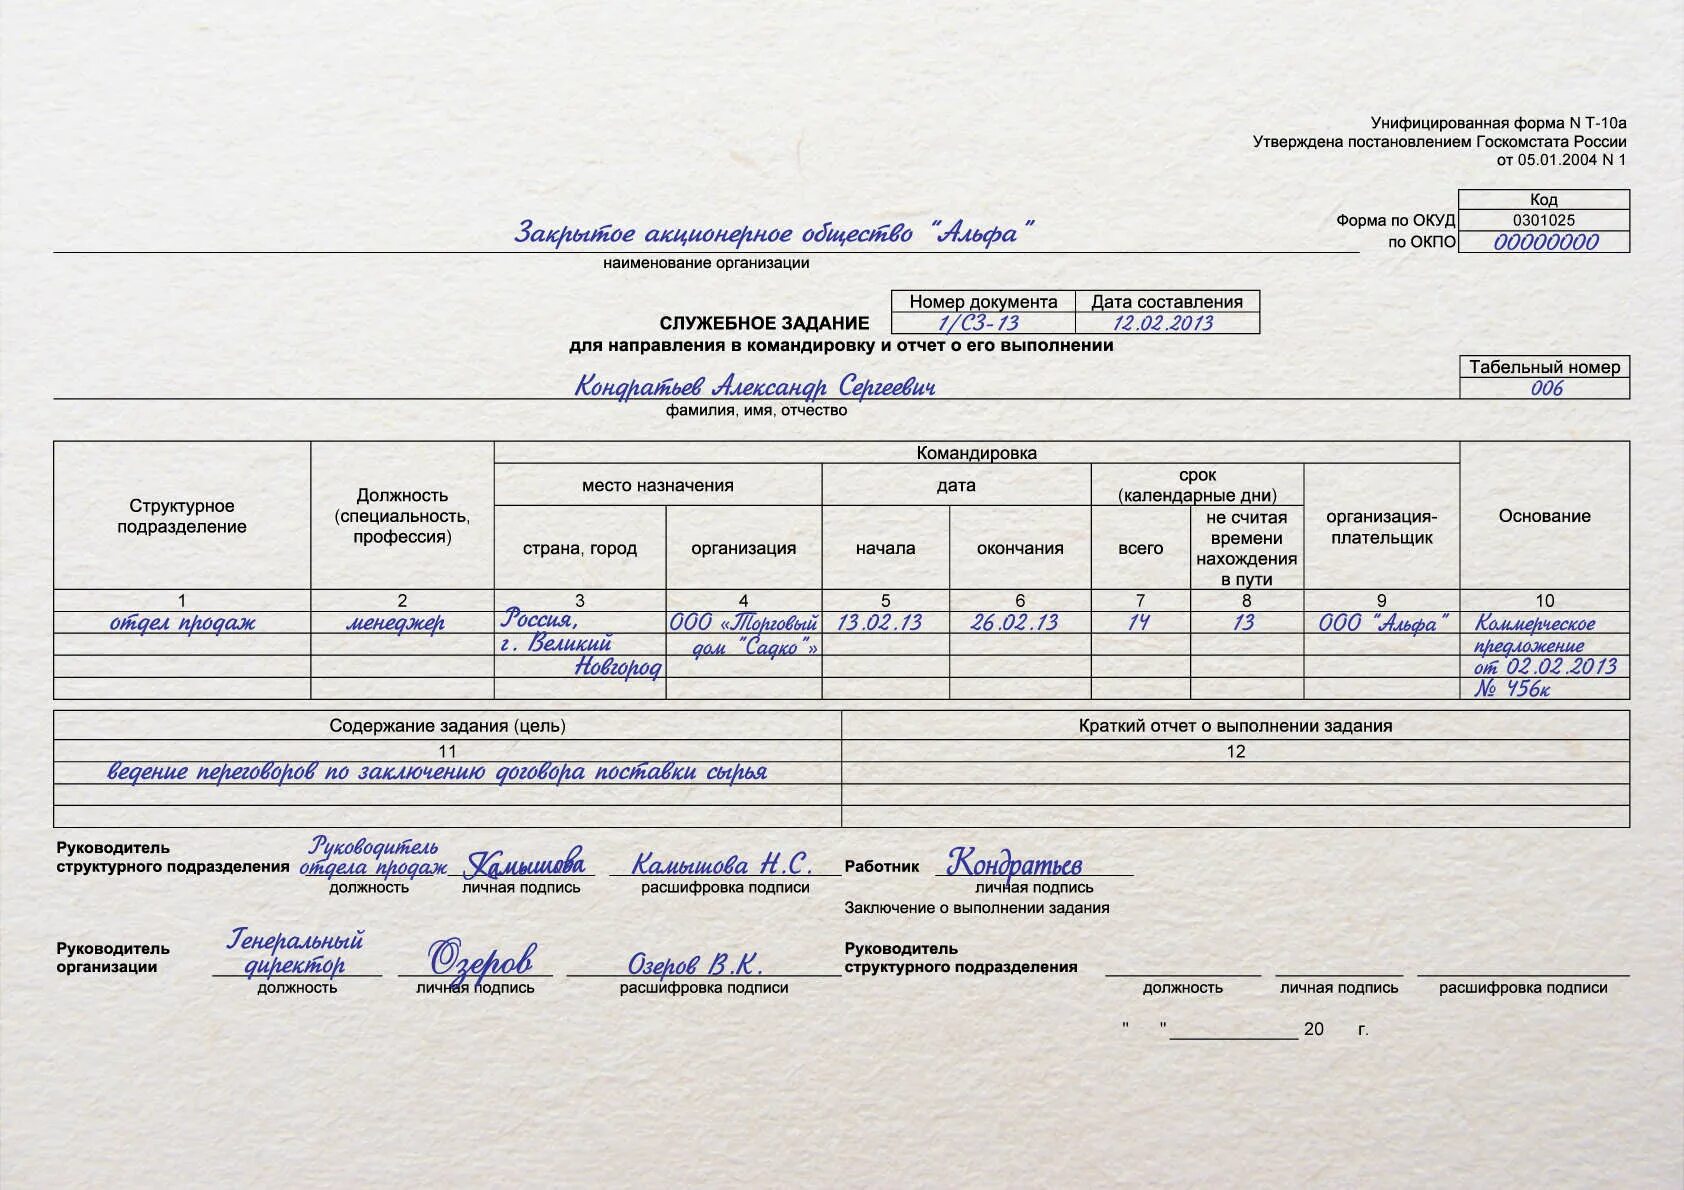 Унифицированная форма N Т-10а
Утверждена постановлением Госкомстата России
от 05.01.2004 N 1
Код
Форма по ОКУД 0301025
по ОКПО 00000000
Закрытое акционерное общество "Альфа"
наименование организации
Номер документа Дата составления
СЛУЖЕБНОЕ ЗАДАНИЕ 1/СЗ-13 12.02.2013
для направления в командировку и отчет о его выполнении
Табельный номер
Кондратьев Александр Сергеевич 006
фамилия, имя, отчество
Структурное
подразделение
Должность
(специальность,
профессия)
Командировка
место назначения
дата
срок
(календарные дни)
организация-
плательщик
Основание
страна, город
организация
начала
окончания
всего
не считая
времени
нахождения
в пути
1 2 3 4 5 6 7 8 9 10
отдел продаж менеджер Россия, ООО «Торговый 13.02.13 26.02.13 14 13 ООО "Альфа" Коммерческое
г. Великий дом "Садко"» предложение
Новгород от 02.02.2013
№ 456к
Содержание задания (цель) Краткий отчет о выполнении задания
11 12
ведение переговоров по заключению договора поставки сырья
Руководитель
структурного подразделения
Руководитель
отдела продаж
Камышова
Камышова Н.С.
должность личная подпись расшифровка подписи
Работник Кондратьев
личная подпись
Заключение о выполнении задания
Руководитель
организации
Генеральный
директор
Озеров
Озеров В.К.
должность личная подпись расшифровка подписи
Руководитель
структурного подразделения
должность личная подпись расшифровка подписи
" " 20 г.